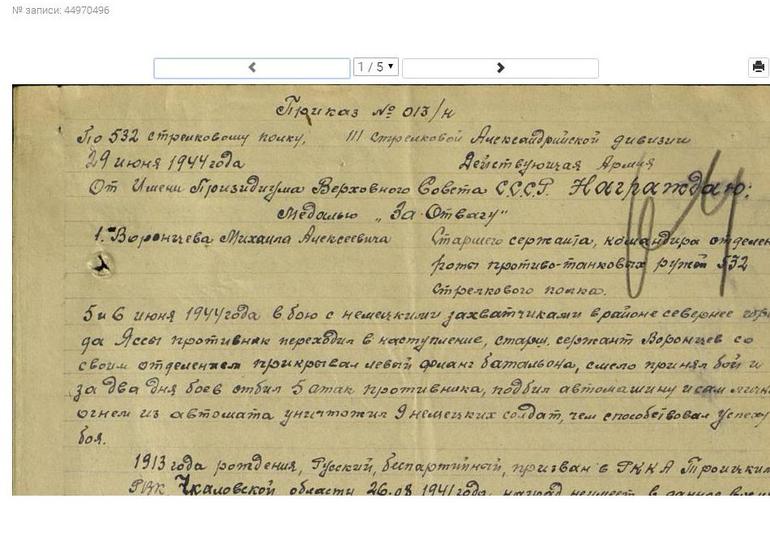 № записи: 44970496
1 / 5
Приказ № 013/н
По 532 стрелковому полку, 111 стрелковой Александрийской дивизии
29 июня 1944 года Действующая Армия
От Имени Призидиума Верховного Совета СССР. Награждаю:
Медалью „За Отвагу"
1. Воронцева Михаила Алексеевича Старшего сержанта, командира отделен
роты противо-танковых ружей 532
стрелкового полка.
5 и 6 июня 1944 года в бою с немецкими захватчиками в районе севернее горо
да Яссы противник переходил в наступление, старш. сержант Воронцев со
своим отделением прикрывал левый фланг батальона, смело принял бой и
за два дня боев отбил 5 атак противника, подбил автомашину и сам лично
огнем из автомата уничтожил 9 немецких солдат, чем способствовал успеху
боя.
1913 года рождения, Русский, беспартийный, призван в РККА Троицким
РВК Чкаловской области 26.08 1941 года, наград неимеет, в данное время